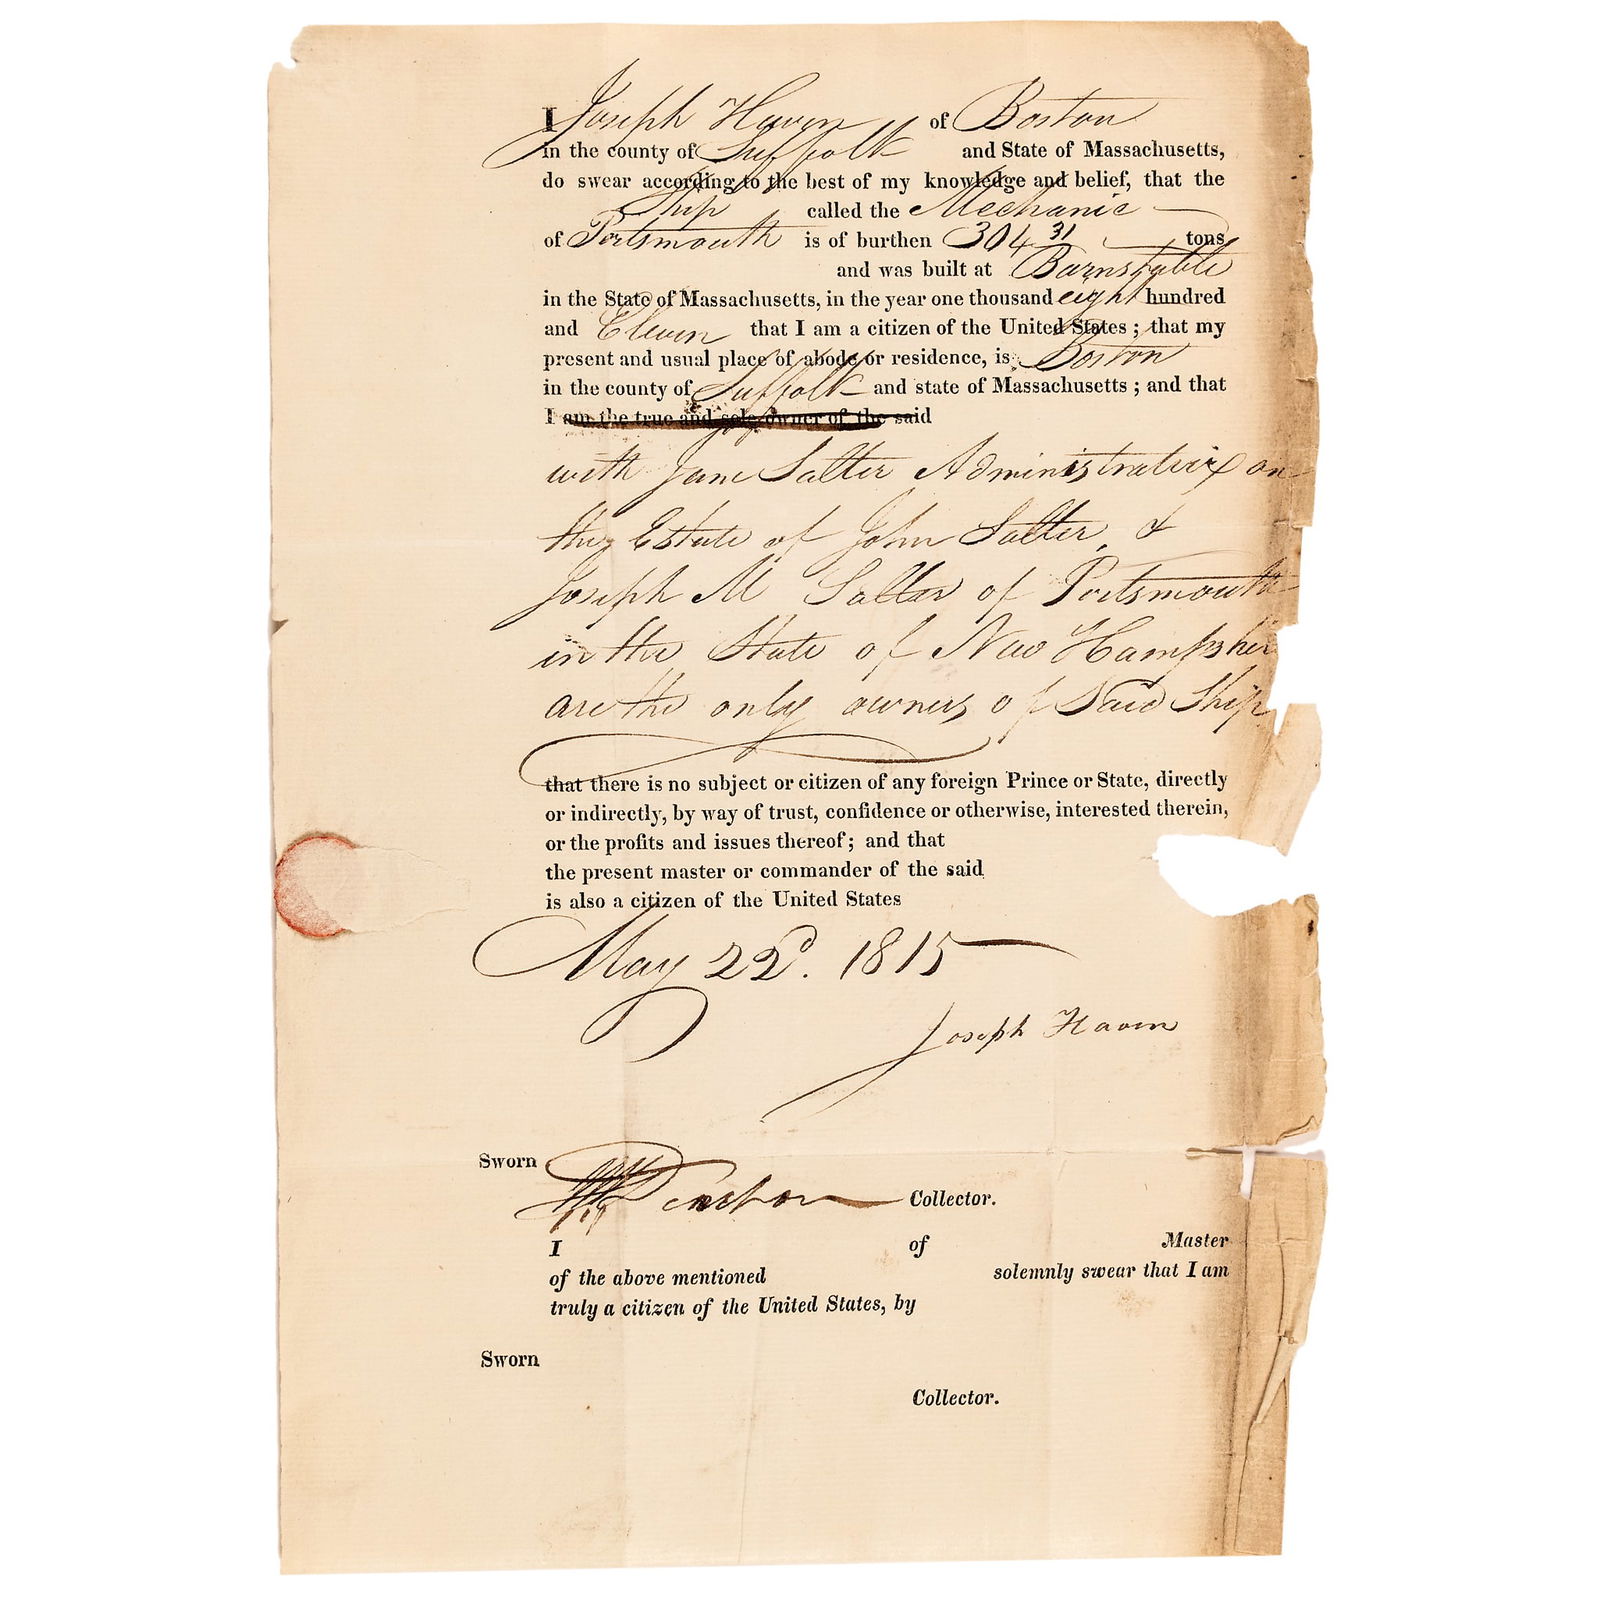 I Joseph Haven of Boston
in the county of Suffolk and State of Massachusetts,
do swear according to the best of my knowledge and belief, that the
Ship called the Mechanic
of Portsmouth is of burthen 304 31 tons
and was built at Barnstable
in the State of Massachusetts, in the year one thousand eight hundred
and Eleven that I am a citizen of the United States; that my
present and usual place of abode or residence, is Boston
in the county of Suffolk and state of Massachusetts; and that
I am the true and sole owner of the said
with Jane Salter Administratrix on
the Estate of John Salter, &
Joseph M Salter of Portsmouth
in the State of New Hampshire
are the only owners of Said Ship
that there is no subject or citizen of any foreign Prince or State, directly
or indirectly, by way of trust, confidence or otherwise, interested therein,
or the profits and issues thereof; and that
the present master or commander of the said
is also a citizen of the United States
May 22d. 1815
Joseph Haven
Sworn
Collector.
I of Master
of the above mentioned solemnly swear that I am
truly a citizen of the United States, by
Sworn
Collector.